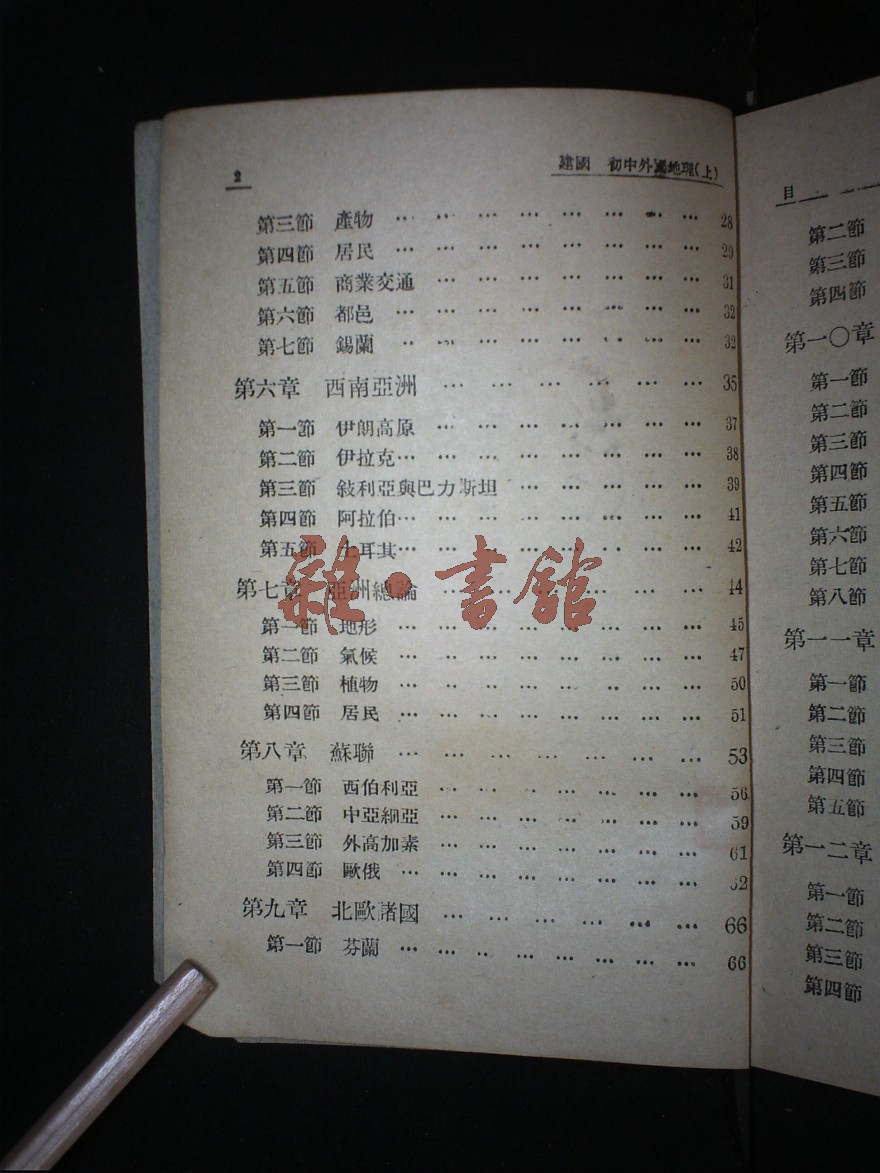 2 建國 初中外國地理(上)
第三節 產物 … … … … … … … … 28
第四節 居民 … … … … … … … … 29
第五節 商業交通 … … … … … … … 31
第六節 都邑 … … … … … … … … 32
第七節 錫蘭 … … … … … … … … 32
第六章 西南亞洲 … … … … … … 35
第一節 伊朗高原 … … … … … … … 37
第二節 伊拉克… … … … … … … … 38
第三節 敍利亞與巴力斯坦 … … … … … 39
第四節 阿拉伯… … … … … … … … 41
第五節 土耳其… … … … … … … … 42
第七章 亞洲總論 … … … … … … … 44
第一節 地形 … … … … … … … … 45
第二節 氣候 … … … … … … … … 47
第三節 植物 … … … … … … … … 50
第四節 居民 … … … … … … … … 51
第八章 蘇聯 … … … … … … … 53
第一節 西伯利亞 … … … … … … … 56
第二節 中亞細亞 … … … … … … … 59
第三節 外高加素 … … … … … … … 61
第四節 歐俄 … … … … … … … … 62
第九章 北歐諸國 … … … … … … 66
第一節 芬蘭 … … … … … … … … 66
雜·書館
目
第二節
第三節
第四節
第一〇章
第一節
第二節
第三節
第四節
第五節
第六節
第七節
第八節
第一一章
第一節
第二節
第三節
第四節
第五節
第一二章
第一節
第二節
第三節
第四節